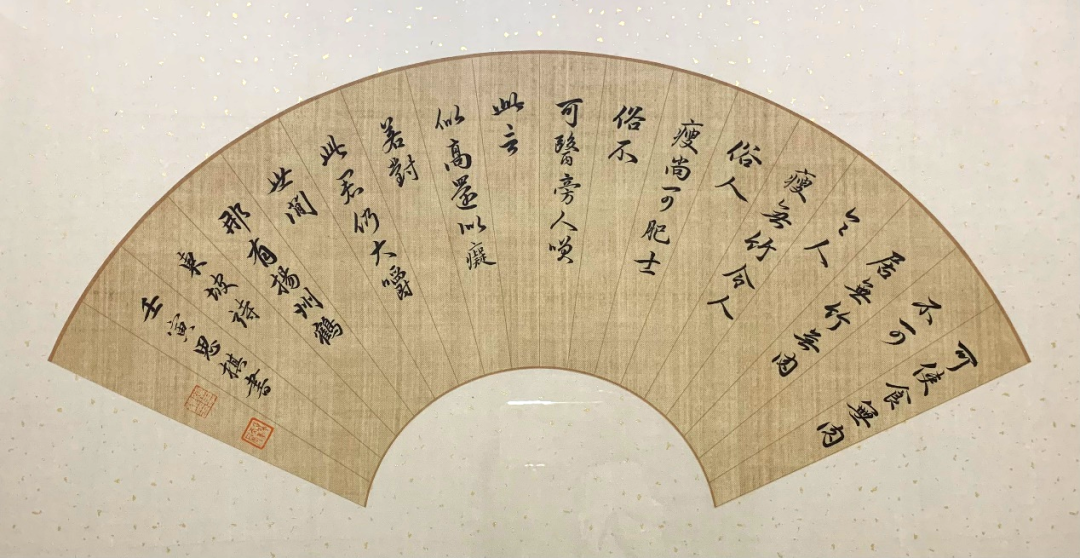 可使食無肉
不可
居無竹無肉
令人
瘦無竹令人
俗人
瘦尚可肥士
俗不
可醫旁人咲
此言
似高還似癡
若對
此君仍大嚼
世間
那有揚州鶴
東坡詩
壬寅思棋書